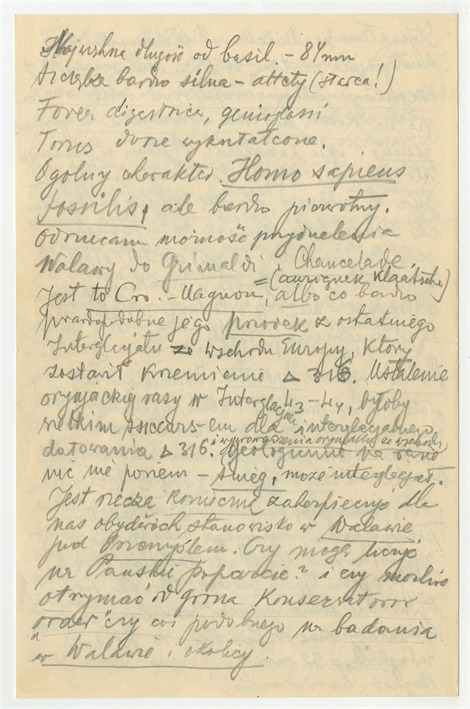 długość od basil. – 84 mm
bardzo silna – atlety (starca!)
Fovea digastrica,
Torus dwie wykształcone.
Ogólny charakter Homo sapiens
fossilis, ale bardzo pierwotny.
Odrzucam możność przydzielenia
Walawy do Grimaldi Chancelade.
Jest to Cro.-Magnon = (aurignak Klaatscha), albo co bardzo
prawdopodobne jego przodek z ostatniego
Interglacjału ze wschodu Europy, który
zostawił krzemienie △ 316. Ustalenie
rasy w Interglacjale 4₃ – 4₄, byłoby
wielkim sukcesem dla interglacjalnego
datowania △ 316, i wyprowadzenia ze wschodu. Geologicznie na razie
nic nie powiem – śnieg, może interglacjał.
Jest rzeczą konieczną zabezpieczyć dla
nas obydwóch stanowisko w Walawie
pod Przemyślem. Czy mogę liczyć
na Pańskie poparcie? i czy możliwe
otrzymać od grona Konserwatorów
order "czy coś podobnego na badania
w Walawie i okolicy.